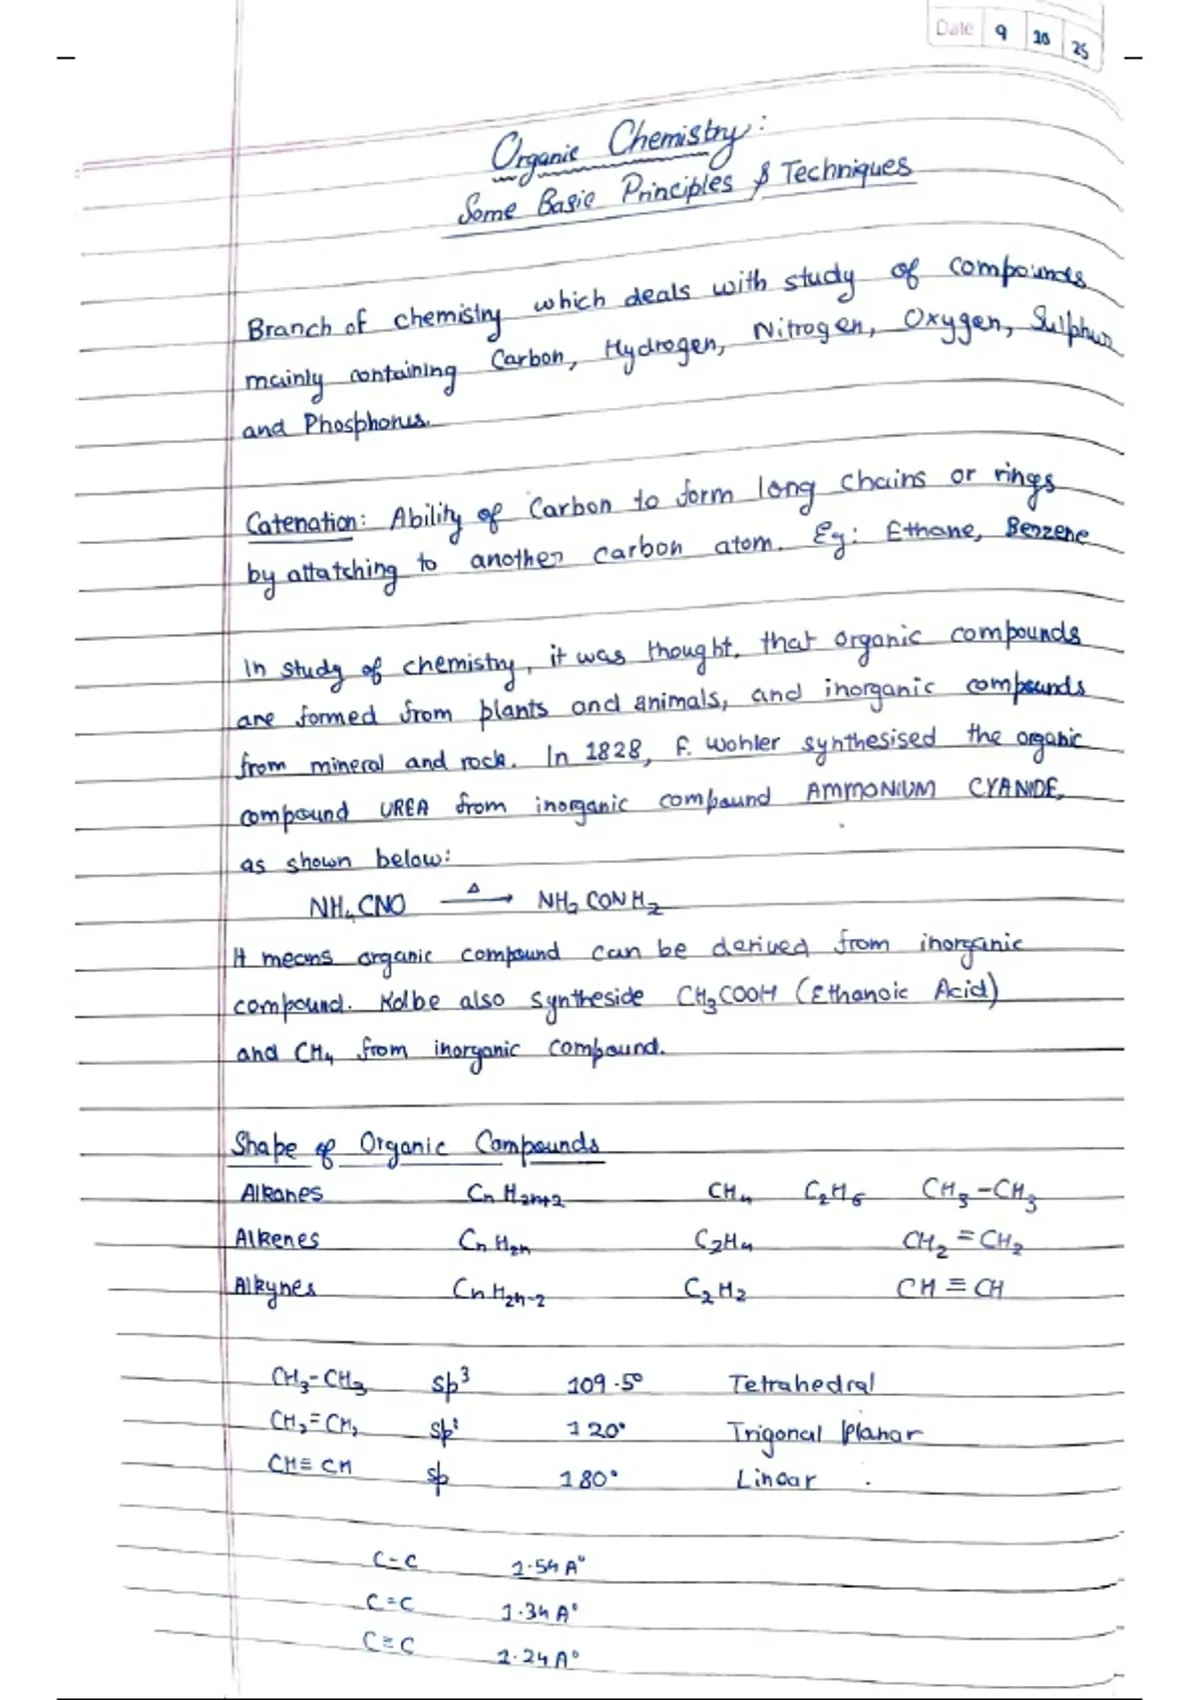 Date 9 10 25
Organic Chemistry:
Some Basic Principles & Techniques
Branch of chemistry which deals with study of compounds
mainly containing Carbon, Hydrogen, Nitrogen, Oxygen, Sulphur
and Phosphorus.
Catenation: Ability of Carbon to form long chains or rings
by attatching to another carbon atom. Eg: Ethane, Benzene
In study of chemistry, it was thought, that organic compounds
are formed from plants and animals, and inorganic compounds
from mineral and rock. In 1828, F. Wohler synthesised the organic
compound UREA from inorganic compound AMMONIUM CYANIDE,
as shown below:
NH₄CNO —Δ→ NH₂CONH₂
It means organic compound can be derived from inorganic
compound. Kolbe also syntheside CH₃COOH (Ethanoic Acid)
and CH₄ from inorganic compound.
Shape of Organic Compounds
Alkanes CnH2n+2 CH₄ C₂H₆ CH₃-CH₃
Alkenes CnH2n C₂H₄ CH₂=CH₂
Alkynes CnH2n-2 C₂H₂ CH≡CH
CH₃-CH₃ sp³ 109.5° Tetrahedral
CH₂=CH₂ sp² 120° Trigonal Planar
CH≡CH sp 180° Linear
C-C 1.54 A°
C=C 1.34 A°
C≡C 1.24 A°